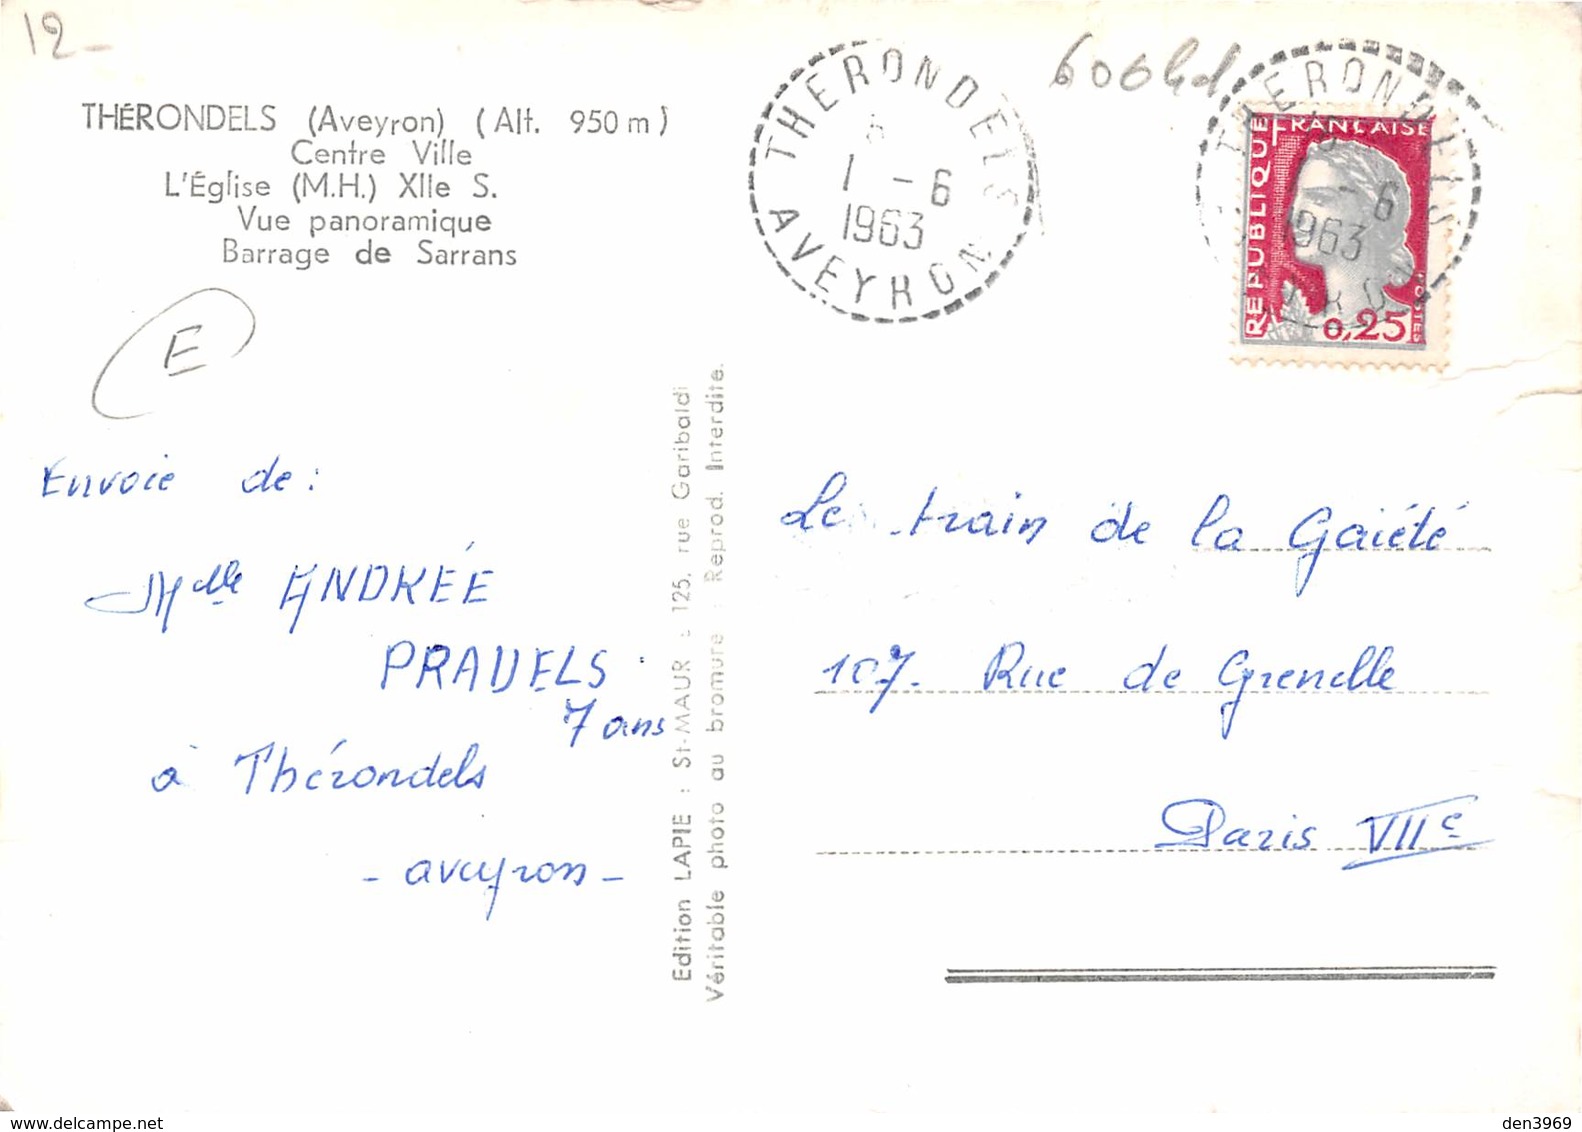 12-
THÉRONDELS (Aveyron) (Alt. 950 m)
Centre Ville
L'Église (M.H.) XIIe S.
Vue panoramique
Barrage de Sarrans
E
THERONDELS
1-6
1963
AVEYRON
THERONDELS
-6
1963
REPUBLIQUE FRANÇAISE
POSTES
0,25
Envoie de :
Mlle ANDRÉE
PRADELS
7 ans
à Thérondels
- aveyron -
Edition LAPIE : St-MAUR : 125, rue Garibaldi
Véritable photo au bromure : Reprod. Interdite.
Le train de la Gaiété
107. Rue de Grenelle
Paris VIIe
den3969